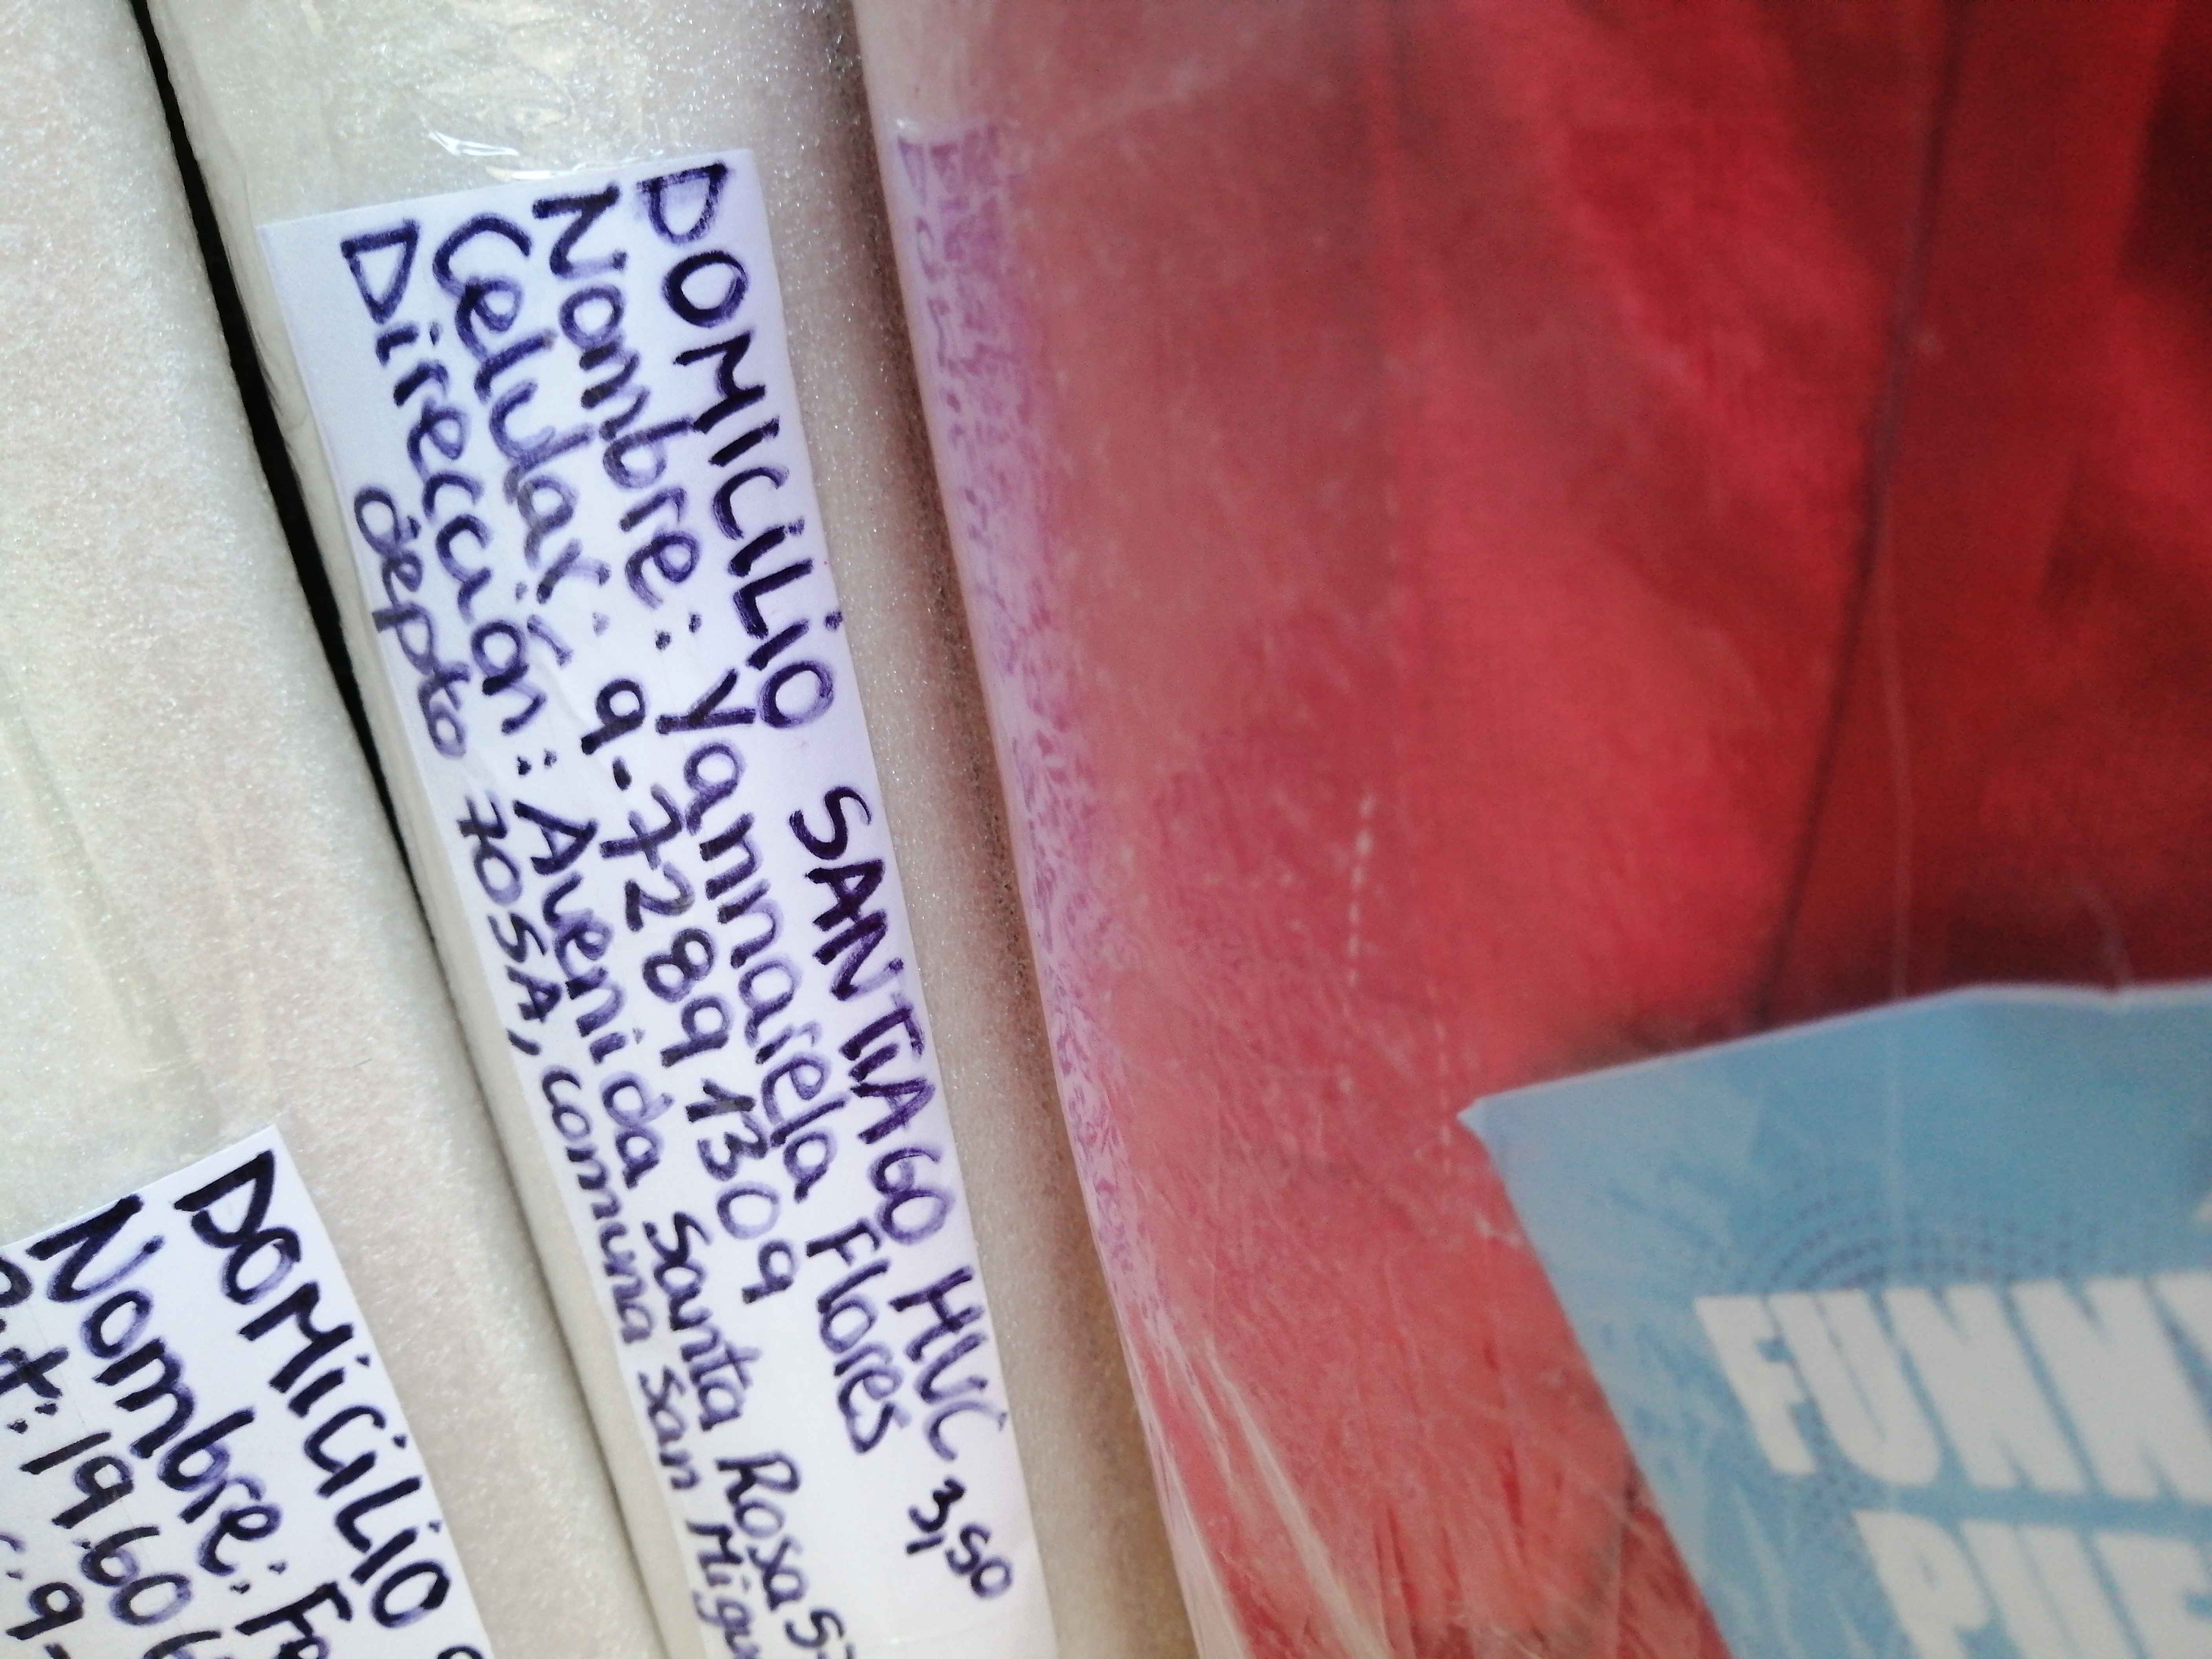 DOMICILIO SANTIAGO HVC 3,50
Nombre: Yannnairela Flores
Celular: 9-7289 1309
Dirección: Avenida Santa Rosa
depto 705A, comuna San
DOMICILIO
Nombre:
FUNNY